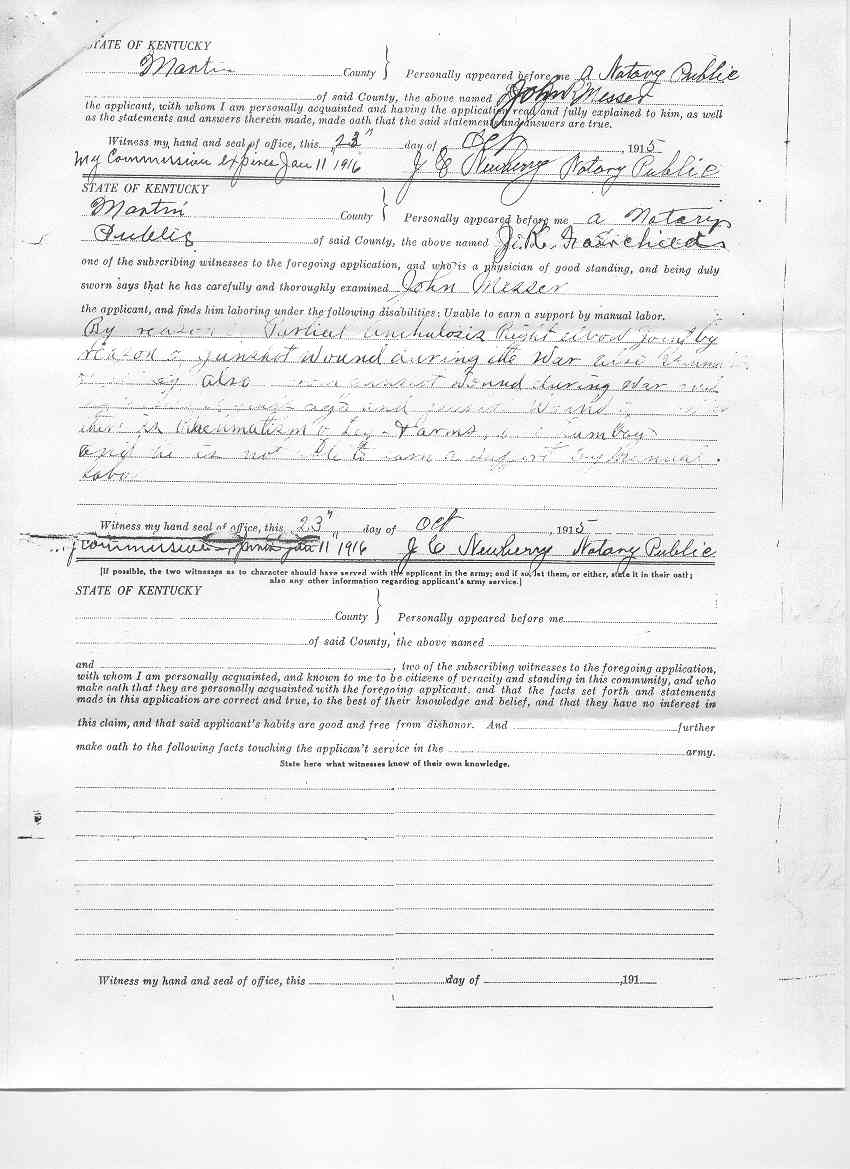 STATE OF KENTUCKY
Martin County } Personally appeared before me a Notary Public
of said County, the above named John Messer
the applicant, with whom I am personally acquainted and having the application read and fully explained to him, as well
as the statements and answers therein made, made oath that the said statements and answers are true.
Witness my hand and seal of office, this 23" day of Oct, 1915
My Commission expires Jan 11 1916 J C Newberry Notary Public
STATE OF KENTUCKY
Martin County } Personally appeared before me a Notary
Public of said County, the above named J. R. Fairchilds
one of the subscribing witnesses to the foregoing application, and who is a physician of good standing, and being duly
sworn says that he has carefully and thoroughly examined John Messer
the applicant, and finds him laboring under the following disabilities: Unable to earn a support by manual labor.
By reason Partial Right Joint by
reason of gunshot wound during the war also
also wound during war and
and
Rheumatism of Leg & arms,
and he is not able to earn a support by manual
labor
Witness my hand seal of office, this 23" day of Oct, 1915
Commission expires Jan 11" 1916 J C Newberry Notary Public
[If possible, the two witnesses as to character should have served with the applicant in the army; and if so, let them, or either, state it in their oath;
also any other information regarding applicant's army service.]
STATE OF KENTUCKY
County } Personally appeared before me
of said County, the above named
and , two of the subscribing witnesses to the foregoing application,
with whom I am personally acquainted, and known to me to be citizens of veracity and standing in this community, and who
make oath that they are personally acquainted with the foregoing applicant. and that the facts set forth and statements
made in this application are correct and true, to the best of their knowledge and belief, and that they have no interest in
this claim, and that said applicant's habits are good and free from dishonor. And further
make oath to the following facts touching the applican't service in the army.
State here what witnesses know of their own knowledge.
Witness my hand and seal of office, this day of ,191